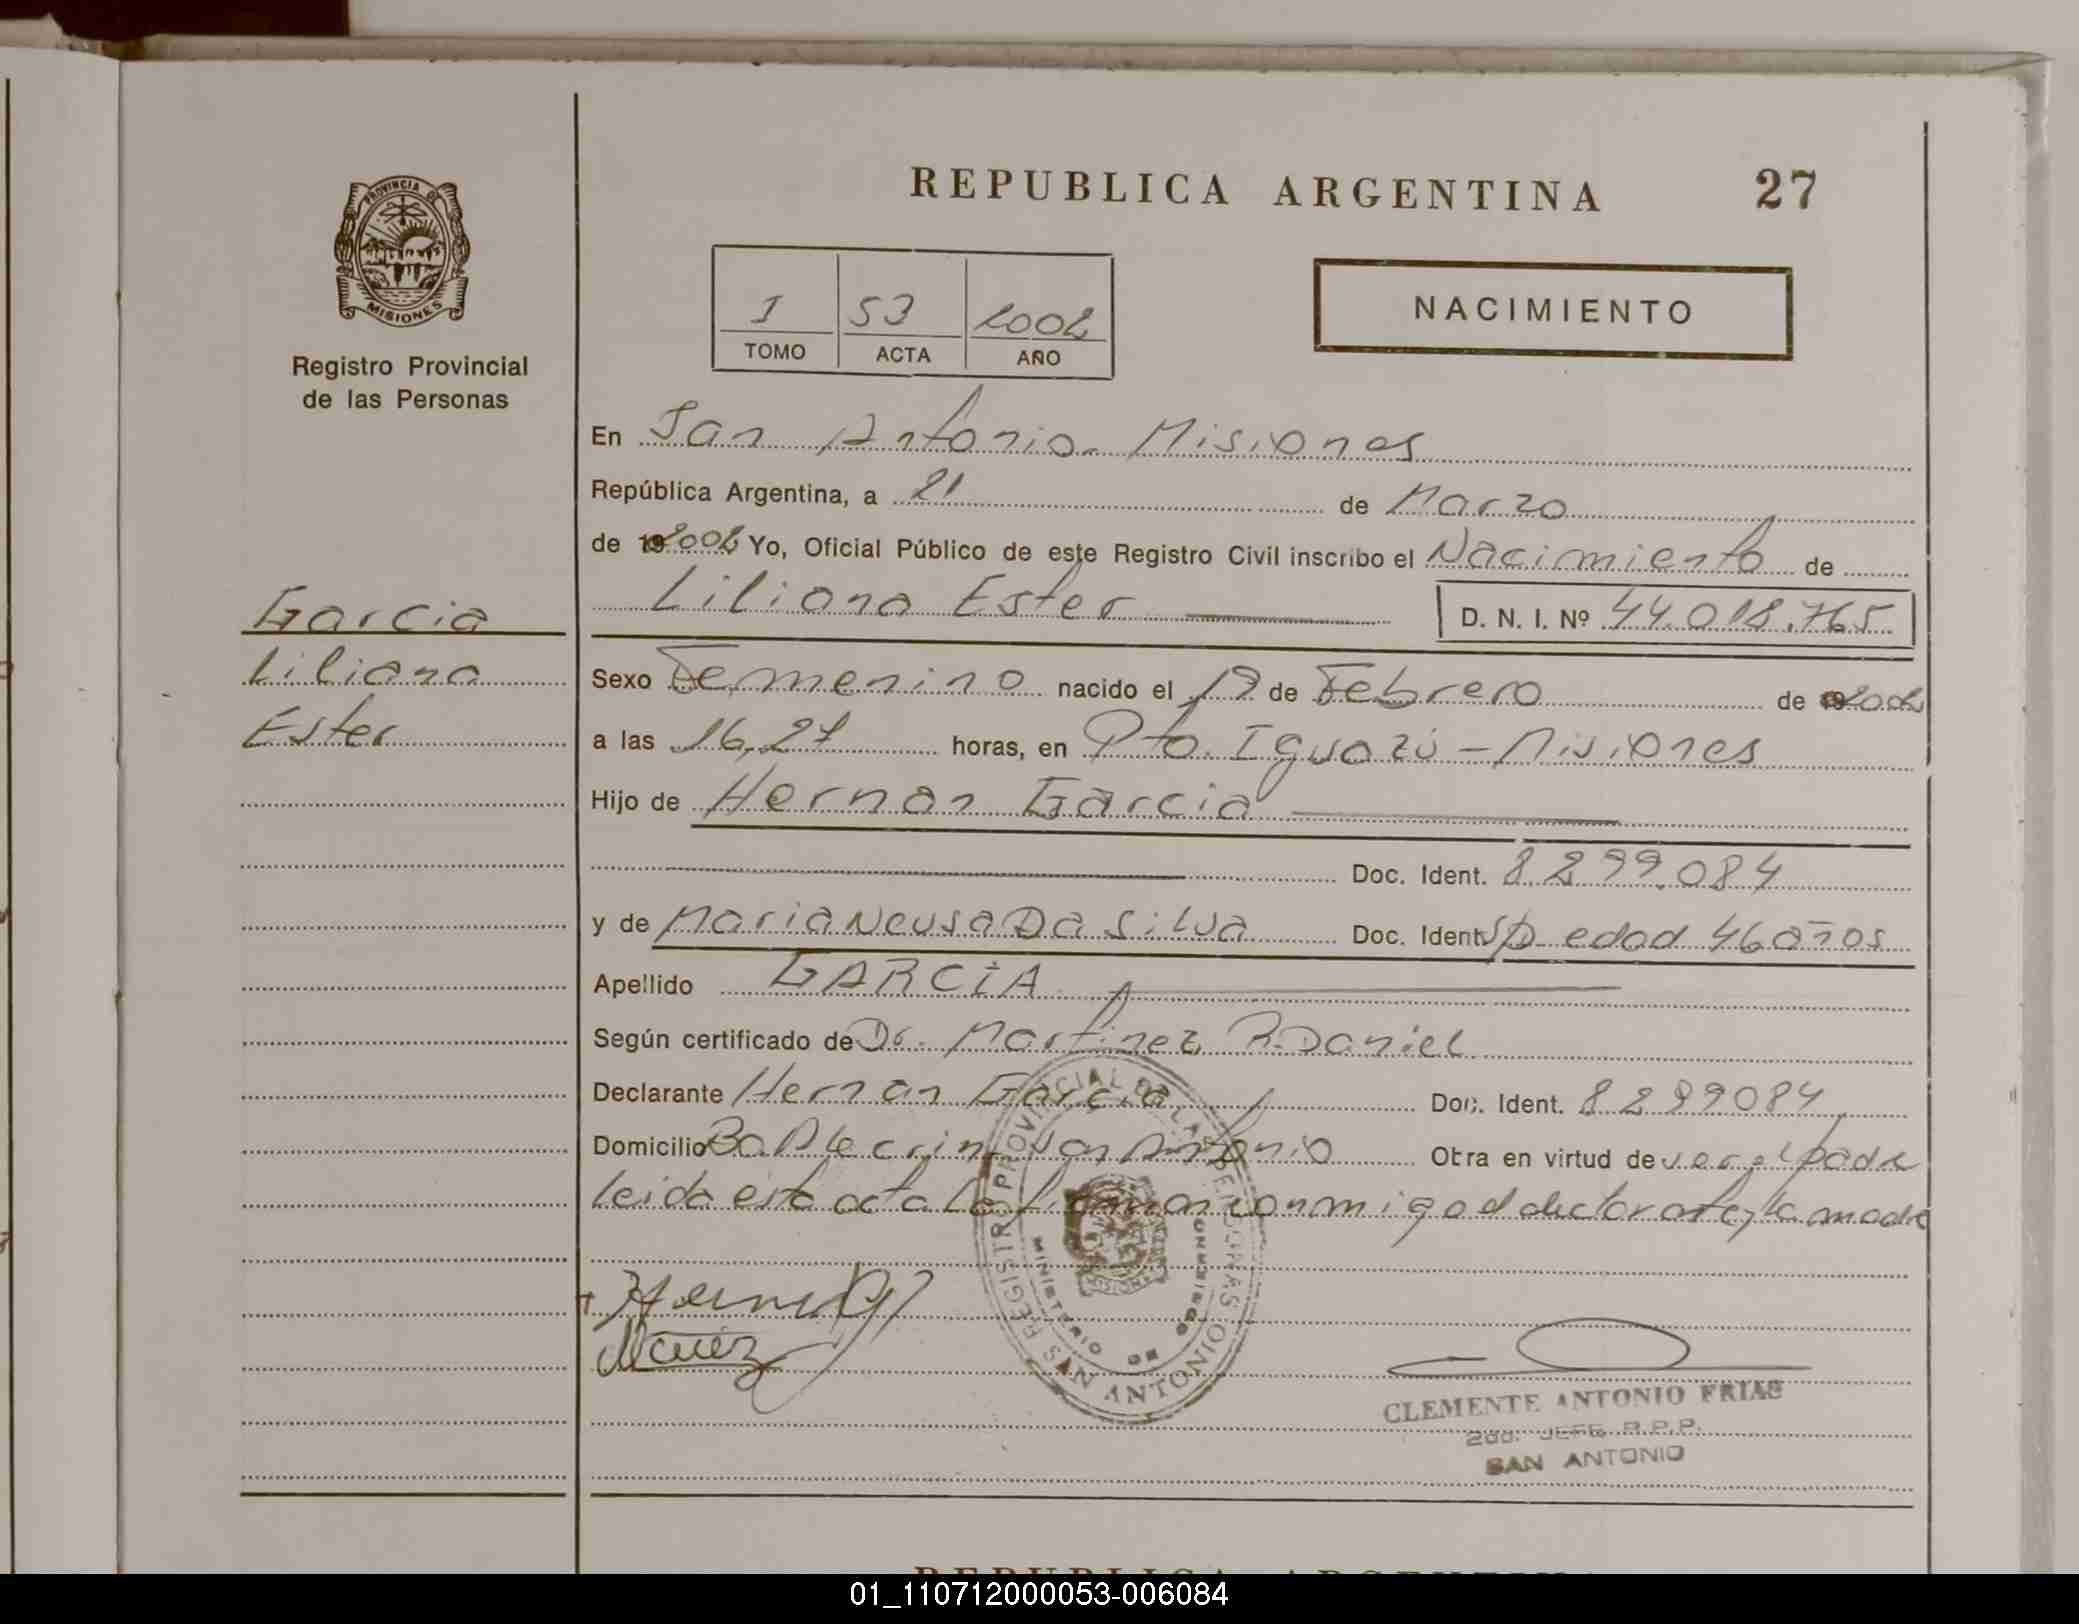 REPUBLICA ARGENTINA 27
PROVINCIA DE MISIONES
Registro Provincial
de las Personas
I 53 2002
TOMO ACTA AÑO
NACIMIENTO
En San Antonio - Misiones
República Argentina, a 21 de Marzo
de 2002 Yo, Oficial Público de este Registro Civil inscribo el Nacimiento de
Liliana Ester D. N. I. Nº 44.018.765
Garcia
Liliana
Ester
Sexo Femenino nacido el 19 de Febrero de 2002
a las 16,27 horas, en Pto. Iguazú - Misiones
Hijo de Hernan Garcia
Doc. Ident. 8.299.084
y de Maria Neusa Da Silva Doc. Ident. S/D edad 46 años
Apellido GARCIA
Según certificado de Dr. Martinez R. Daniel
Declarante Hernan Garcia Doc. Ident. 8299084
Domicilio Bo. San Antonio Otra en virtud de ser el padre
Leida esta acta la firman conmigo el declarante y la madre
REGISTRO PROVINCIAL DE LAS PERSONAS
MINISTERIO DE GOBIERNO
SAN ANTONIO
CLEMENTE ANTONIO FRIAS
2do. JEFE R.P.P.
SAN ANTONIO
REPUBLICA ARGENTINA
01_110712000053-006084